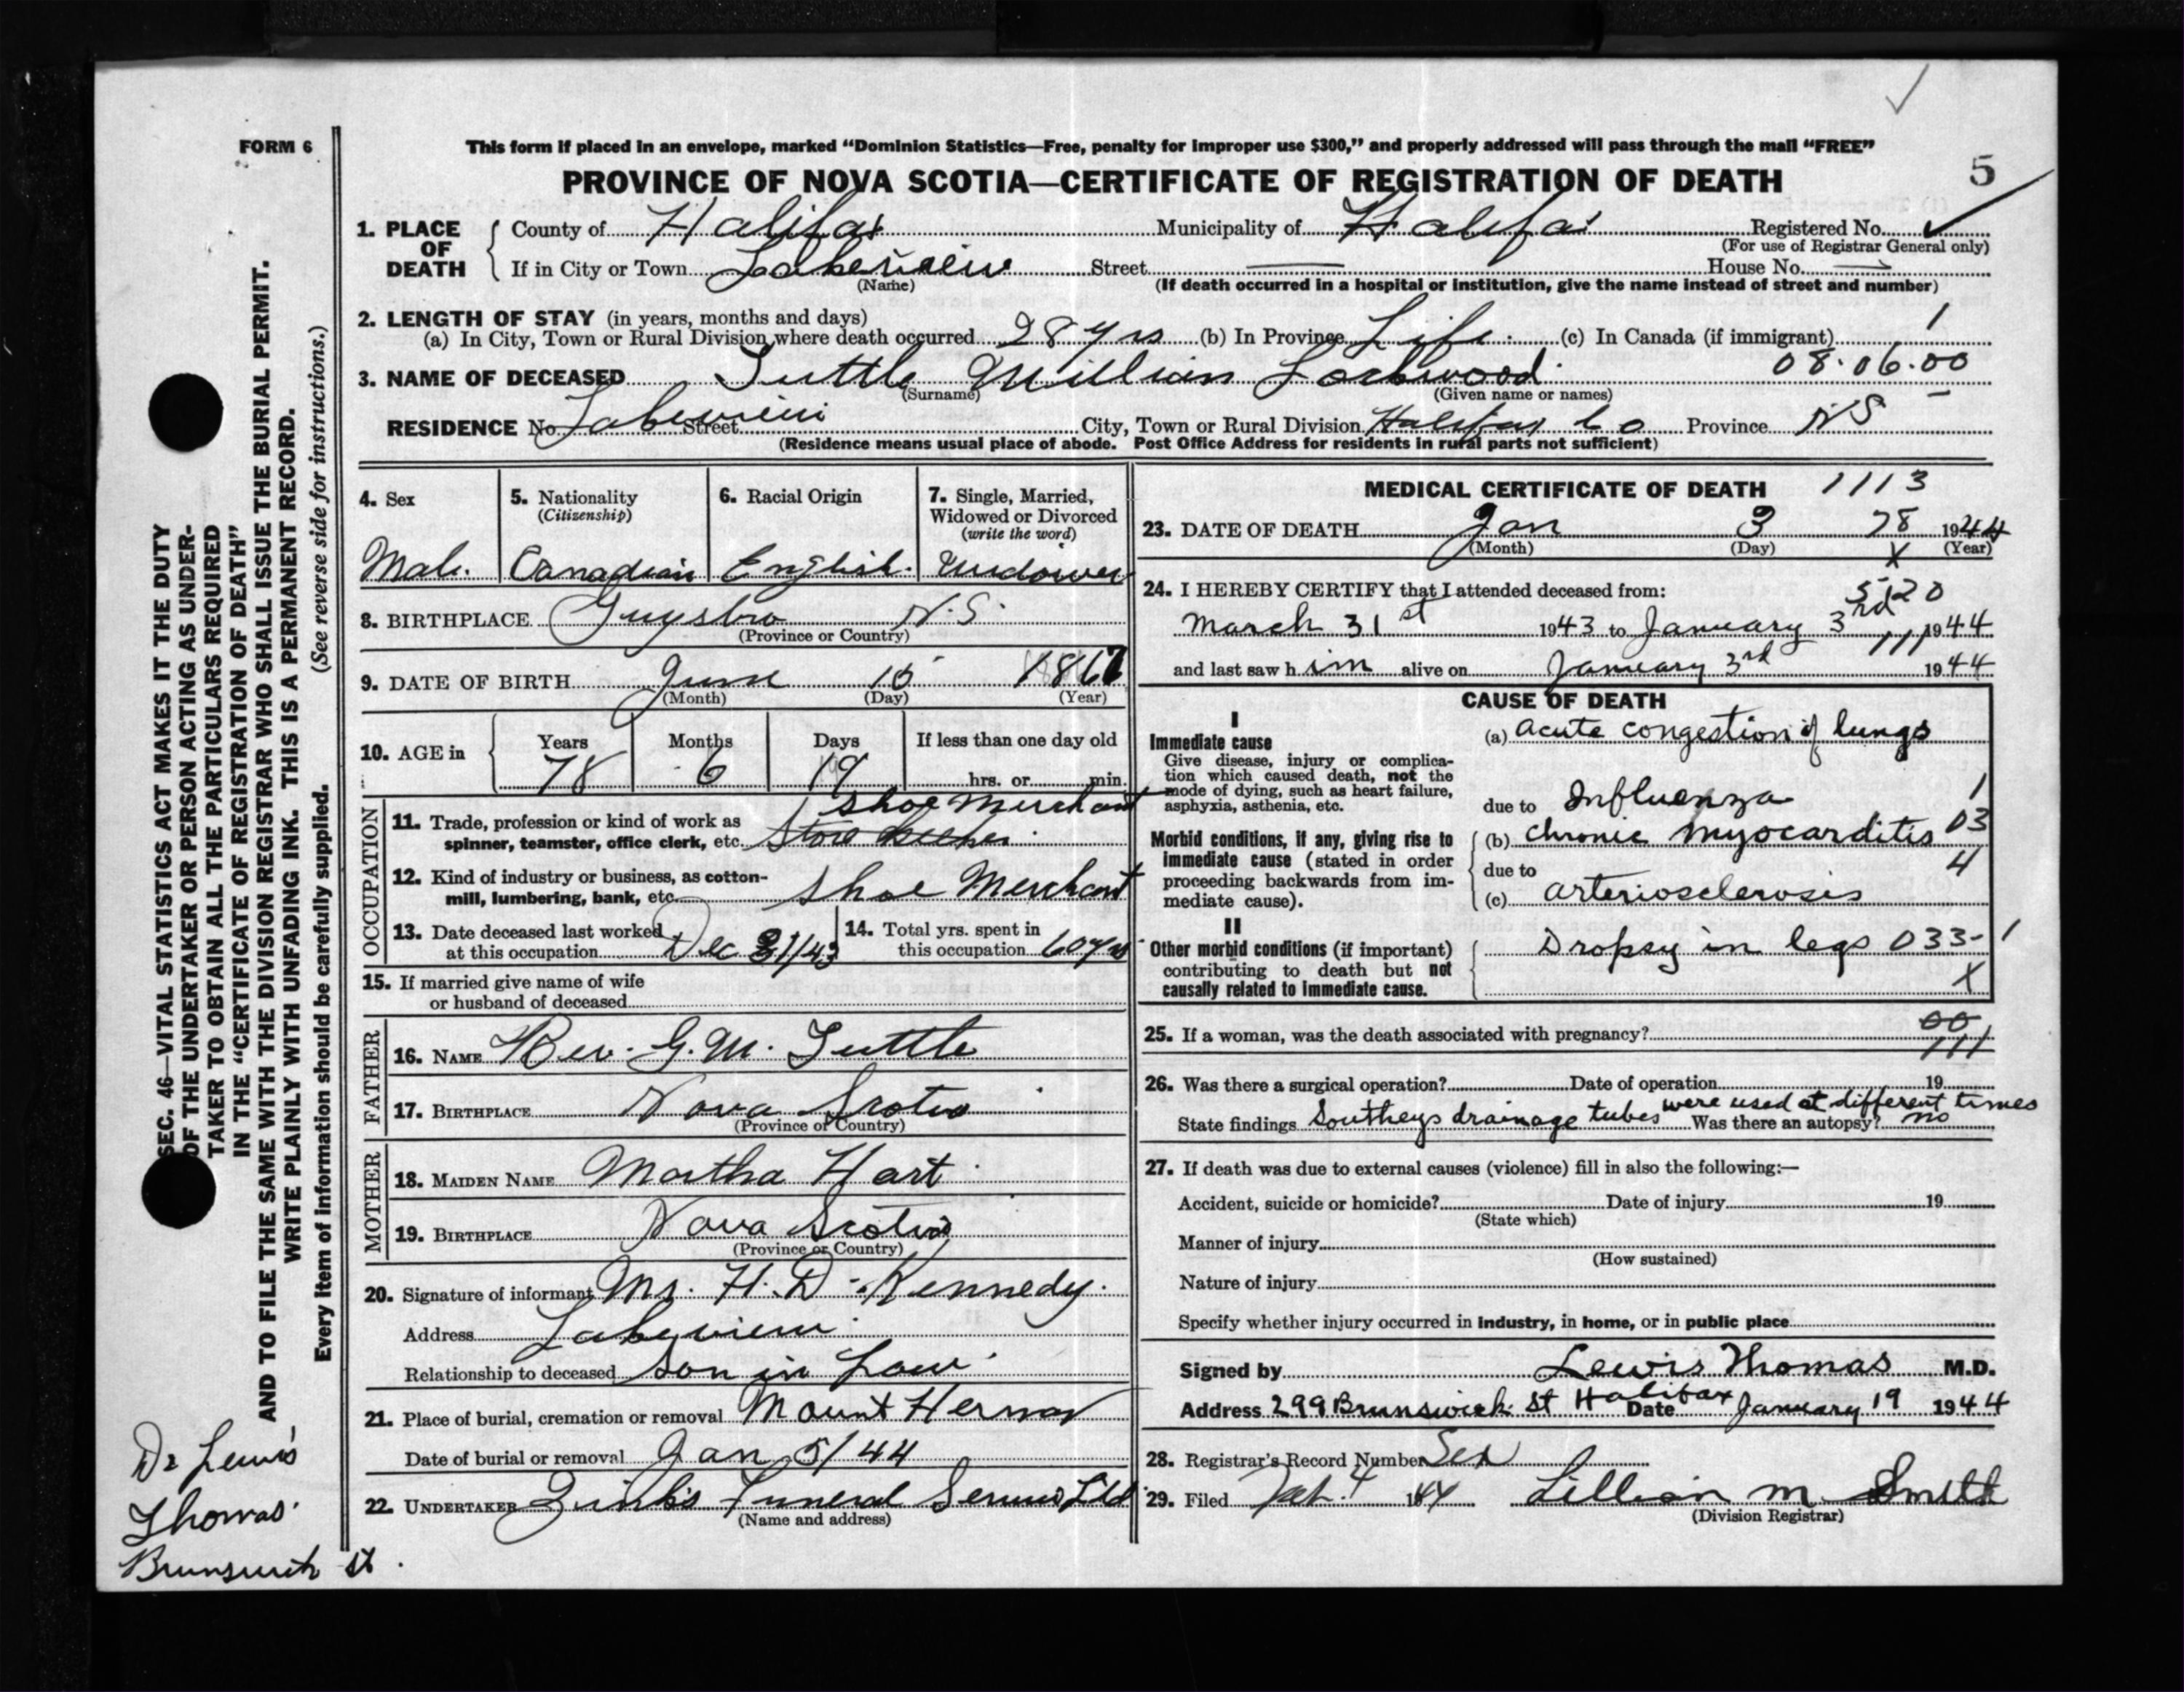 FORM 6
This form if placed in an envelope, marked “Dominion Statistics—Free, penalty for improper use $300,” and properly addressed will pass through the mail “FREE”
PROVINCE OF NOVA SCOTIA—CERTIFICATE OF REGISTRATION OF DEATH
5
1. PLACE OF DEATH
County of Halifax Municipality of Halifax Registered No.
(For use of Registrar General only)
If in City or Town Lakeview Street — House No. —
(Name) (If death occurred in a hospital or institution, give the name instead of street and number)
2. LENGTH OF STAY (in years, months and days)
(a) In City, Town or Rural Division where death occurred 28 yrs (b) In Province Life. (c) In Canada (if immigrant) 1
3. NAME OF DECEASED Tuttle William Lockwood 08.06.00
(Surname) (Given name or names)
RESIDENCE No. Lakeview Street City, Town or Rural Division Halifax Co Province NS
(Residence means usual place of abode. Post Office Address for residents in rural parts not sufficient)
4. Sex
Male.
5. Nationality
(Citizenship)
Canadian
6. Racial Origin
English.
7. Single, Married,
Widowed or Divorced
(write the word)
Widower
8. BIRTHPLACE Guysboro N.S.
(Province or Country)
9. DATE OF BIRTH June 15
(Month) (Day) (Year)
10. AGE in
Years Months Days If less than one day old
78 6 19 hrs. or min.
OCCUPATION
Shoe Merchant
11. Trade, profession or kind of work as
spinner, teamster, office clerk, etc. Store Keeper
12. Kind of industry or business, as cotton-
mill, lumbering, bank, etc. Shoe Merchant
13. Date deceased last worked
at this occupation Dec 31/43
14. Total yrs. spent in
this occupation 60 yrs
15. If married give name of wife
or husband of deceased
FATHER
16. NAME Rev. G.M. Tuttle
17. BIRTHPLACE Nova Scotia
(Province or Country)
MOTHER
18. MAIDEN NAME Martha Hart
19. BIRTHPLACE Nova Scotia
(Province or Country)
20. Signature of informant Mr. H.D. Kennedy.
Address Lakeview
Relationship to deceased Son in Law
21. Place of burial, cremation or removal Mount Hermon
Date of burial or removal Jan 5/44
22. UNDERTAKER Zink's Funeral Service Ltd
(Name and address)
MEDICAL CERTIFICATE OF DEATH 1113
23. DATE OF DEATH Jan 3 78 1944
(Month) (Day) X (Year)
24. I HEREBY CERTIFY that I attended deceased from:
5120
March 31st 1943 to January 3rd 1944
111
and last saw him alive on January 3rd 1944
CAUSE OF DEATH
I
Immediate cause
Give disease, injury or complica-
tion which caused death, not the
mode of dying, such as heart failure,
asphyxia, asthenia, etc.
(a) acute congestion of lungs
due to Influenza 1
Morbid conditions, if any, giving rise to
immediate cause (stated in order
proceeding backwards from im-
mediate cause).
(b) chronic myocarditis 03
due to 4
(c) arteriosclerosis
II
Other morbid conditions (if important)
contributing to death but not
causally related to immediate cause.
Dropsy in legs 033-1
X
25. If a woman, was the death associated with pregnancy? 00
111
26. Was there a surgical operation? Date of operation 19
were used at different times
State findings Southeys drainage tubes Was there an autopsy? no
27. If death was due to external causes (violence) fill in also the following:—
Accident, suicide or homicide? Date of injury 19
(State which)
Manner of injury
(How sustained)
Nature of injury
Specify whether injury occurred in industry, in home, or in public place
Signed by Lewis Thomas M.D.
Address 299 Brunswick St Halifax Date January 19 1944
28. Registrar's Record Number
29. Filed 4 1944 Lillian M Smith
(Division Registrar)
SEC. 46—VITAL STATISTICS ACT MAKES IT THE DUTY
OF THE UNDERTAKER OR PERSON ACTING AS UNDER-
TAKER TO OBTAIN ALL THE PARTICULARS REQUIRED
IN THE “CERTIFICATE OF REGISTRATION OF DEATH”
AND TO FILE THE SAME WITH THE DIVISION REGISTRAR WHO SHALL ISSUE THE BURIAL PERMIT.
WRITE PLAINLY WITH UNFADING INK. THIS IS A PERMANENT RECORD.
Every item of information should be carefully supplied. (See reverse side for instructions.)
Dr Lewis
Thomas
Brunswick St.